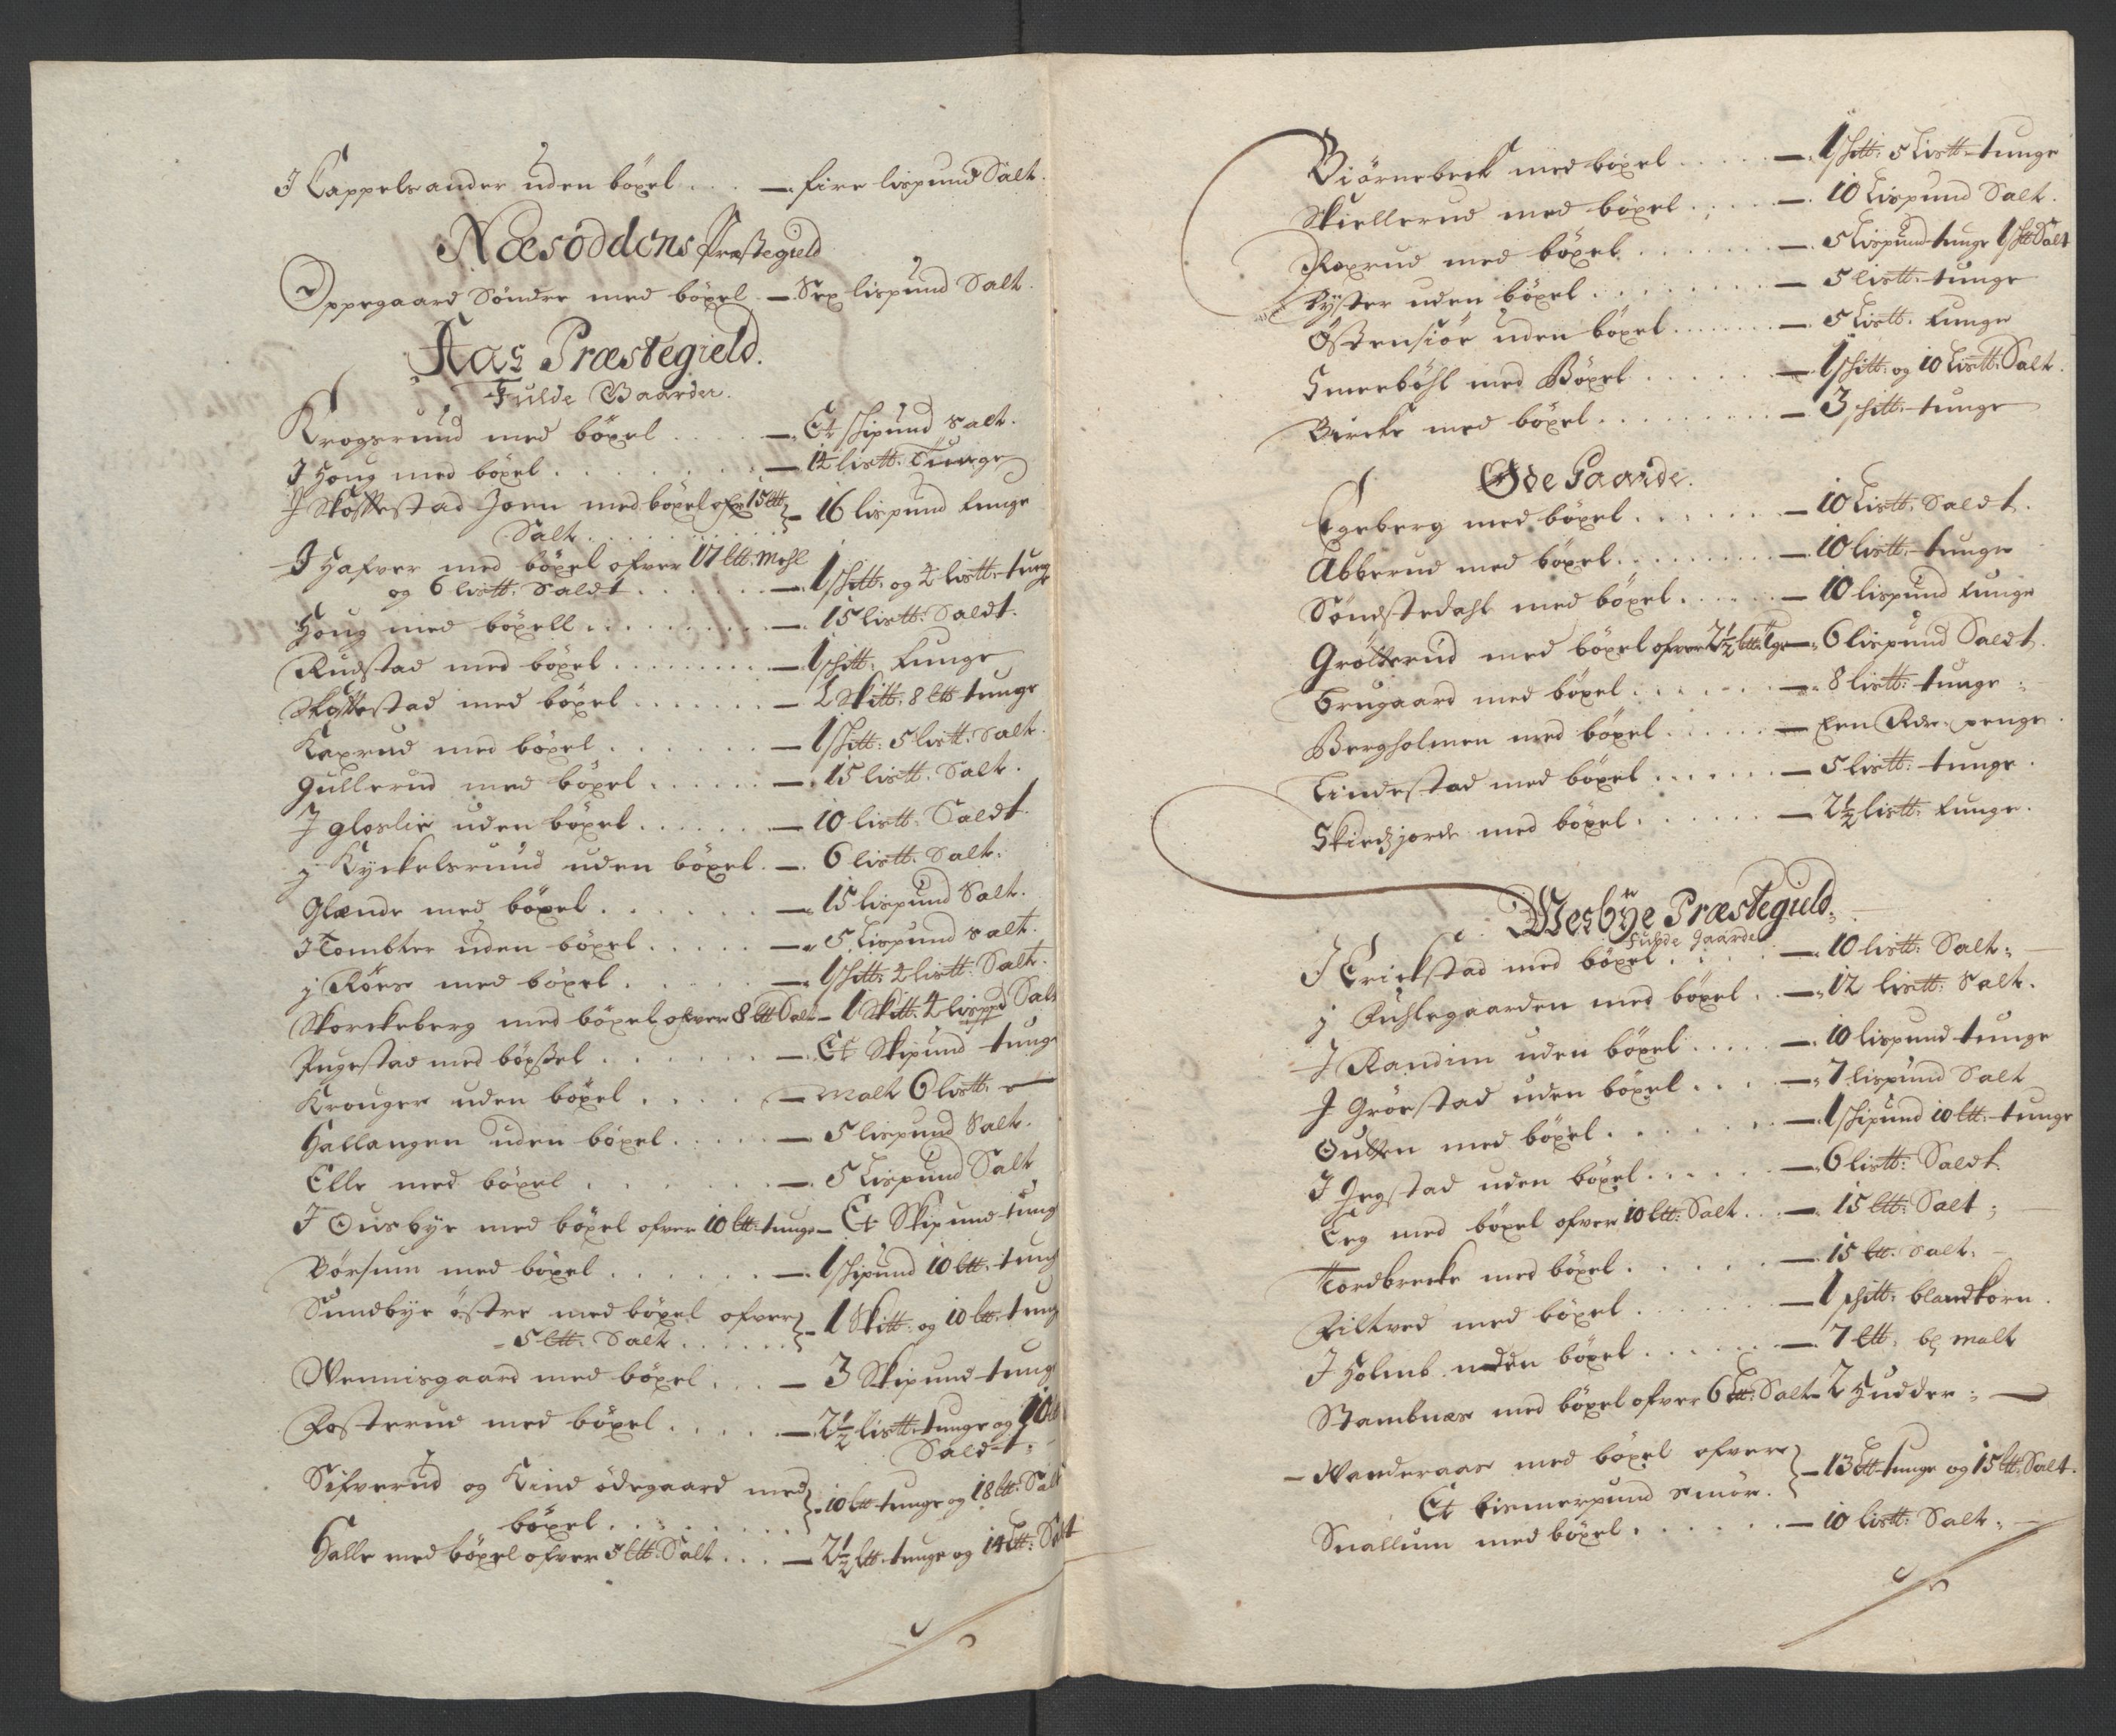 J Cappelsander uden böxel . . . — fire lispund Salt.
Næsoddens Præstegield
Oppegaard Söndre med böxel — Sex lispund Salt.
Aas Præstegield.
Fulde Gaarder.
Krogsrund med böxel . . . . — Et schipund Salt.
J Houg med böxel . . . . . . — 14 listt: Tunge
J Skoffestad Joen med böxel ofver 15 ltt Salt . . . } — 16 lispund tunge
J Hafver med böxel ofver 17 ltt: Mehl
og 6 listt: Saldt . . . . . — 1 schtt: og 4 listt: tunge
Houg med böxell . . . . . . — 15 listt: Saldt.
Rudstad med böxel . . . . . — 1 schtt: tunge
Skoffestad med böxel . . . . — 2 Skitt: 8 ltt tunge
Kaxrud med böxel . . . . . — 1 schtt: 5 listt: Salt.
Gullerud med böxel . . . . . — 15 listt: Salt.
J gloslie uden böxel . . . . — 10 listt: Saldt.
j Kyckelsrund uden böxel . — 6 listt: Salt.
Glænde med böxel . . . . . — 15 lispund Salt.
J Tombter uden böxel . . . . — 5 Lispund Salt.
j Röes med böxel . . . . . — 1 schtt: 2 listt: Salt.
Skorckeberg med böxel ofver 8 ltt Salt — 1 Skitt: 4 lispd Salt
Rugestad med böxsel . . . . — Et Skipund tunge
Krouger uden böxel . . . . — Malt 6 listt: —
Hallangen uden böxel . . . . — 5 lispund Salt.
Elle med böxel . . . . . . — 5 Lispund Salt
J Ousbye med böxel ofver 10 ltt: tunge — Et Skipund tung
Börsum med böxel . . . . . — 1 schipund 10 ltt: tung
Sundbye östre med böxel ofver
5 ltt: Salt . . . . . } — 1 Skitt: og 10 ltt: tung
Wennisgaard med böxel . . . — 3 Skipund tunge
Fosterud med böxel . . . . — 2½ listt: tunge og 10 ltt
Saldt.
Sifverud og Lind ödegaard med
böxel . . . . . . } — 10 ltt tunge og 18 ltt: Salt
Halle med böxel ofver 5 ltt: Salt . . . — 2½ ltt: tunge og 14 ltt: Salt
Biörnebeck med böxel . . . . — 1 schtt: 5 Listt: tunge
Skiellerud med böxel . . . . — 10 Lispund Salt.
Roxrud med böxel . . . . . — 5 Lispund tunge 1 schtt Salt
Kyster uden böxel . . . . . — 5 listt: tunge
Östensiör uden böxel . . . . — 5 Listt: tunge
Smerböhl med Böxel . . . . — 1 schtt: og 10 Listt: Salt.
Bircke med böxel . . . . . — 3 schtt: tunge
Øde Gaarde.
Egeberg med böxel . . . . . — 10 Listt: Saldt.
Abberud med böxel . . . . . — 10 listt: tunge
Söndstedahl med böxel . . . . — 10 lispund tunge
Grötterud med böxel ofver 2½ ltt: tge — 6 Lispund Saldt.
Brugaard med böxel . . . . — 8 listt: tunge
Bergholmen med böxel . . . . — Een Rdr: penge.
Lindestad med böxel . . . . — 5 listt: tunge.
Skiedzjorde med böxel . . . . — 2½ listt: tunge.
Wesbye Præstegield.
Fulde Gaarde
J Erickstad med böxel . . . — 10 listt: Salt.
j Fuhlegaarden med böxel . — 12 listt: Salt.
J Randim uden böxel . . . . — 10 lispund tunge
J Gröestad uden böxel . . . — 7 lispund Salt
Outten med böxel . . . . . — 1 schipund 10 ltt: tunge
J Jegstad uden böxel . . . . — 6 listt: Saldt.
Erg med böxel ofver 10 ltt: Salt . . — 15 ltt: Salt
Tordbrecke med böxel . . . . — 15 ltt: Salt.
Filtved med böxel . . . . . — 1 schtt: blandkorn.
J Holmb uden böxel . . . . — 7 ltt: bl: malt
Stambnæs med böxel ofver 6 ltt: Salt — 2 Hudder
Wanderaas med böxel ofver
Et bismerpund Smör. } — 13 ltt tunge og 15 ltt: Salt.
Snallum med böxel . . . . . — 10 listt: Salt.